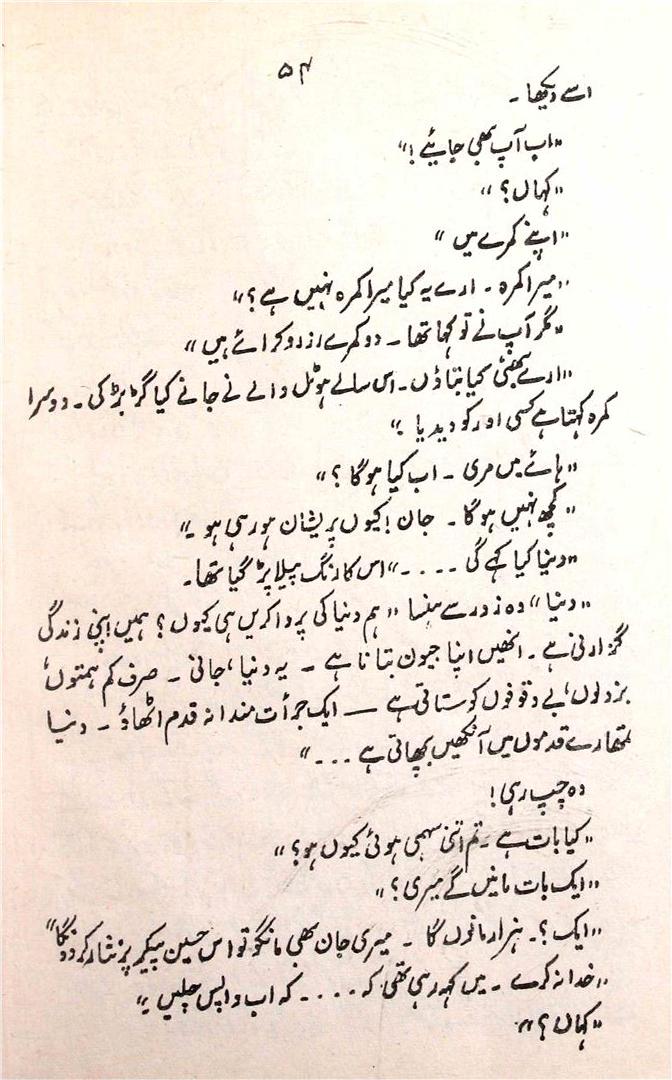 ۵۴
اسے دیکھا۔
"اب آپ بھی جائیے!"
"کہاں؟"
"اپنے کمرے میں"
"میرا کمرہ۔ ارے یہ کیا میرا کمرہ نہیں ہے؟"
"مگر آپ نے تو کہا تھا۔ دو کمرے رزرو کرائے ہیں"
"ارے بھئی کیا بتاؤں۔ اس سالے ہوٹل والے نے جانے کیا گڑبڑ کی۔ دوسرا
کمرہ کہتا ہے کسی اور کو دیدیا۔"
"ہائے میں مری۔ اب کیا ہوگا؟"
"کچھ نہیں ہوگا۔ جان! کیوں پریشان ہو رہی ہو۔"
"دنیا کیا کہے گی ...." اس کا رنگ پیلا پڑ گیا تھا۔
"دنیا" وہ زور سے ہنسا "ہم دنیا کی پروا کریں ہی کیوں؟ ہمیں اپنی زندگی
گزارنی ہے۔ انھیں اپنا جیون بتانا ہے۔ یہ دنیا، جانی۔ صرف کم ہمتوں،
بزدلوں، بے وقوفوں کو ستاتی ہے — ایک جرأت مندانہ قدم اٹھاؤ۔ دنیا
تمھارے قدموں میں آنکھیں بچھاتی ہے ...."
وہ چپ رہی!
"کیا بات ہے۔ تم اتنی سہمی ہوئی کیوں ہو؟"
"ایک بات مانیں گے میری؟"
"ایک؟۔ ہزار مانوں گا۔ میری جان بھی مانگو تو اس حسین پیکر پر نثار کر دونگا"
"خدا نہ کرے۔ میں کہہ رہی تھی کہ .... کہ اب واپس چلیں۔"
"کہاں؟"